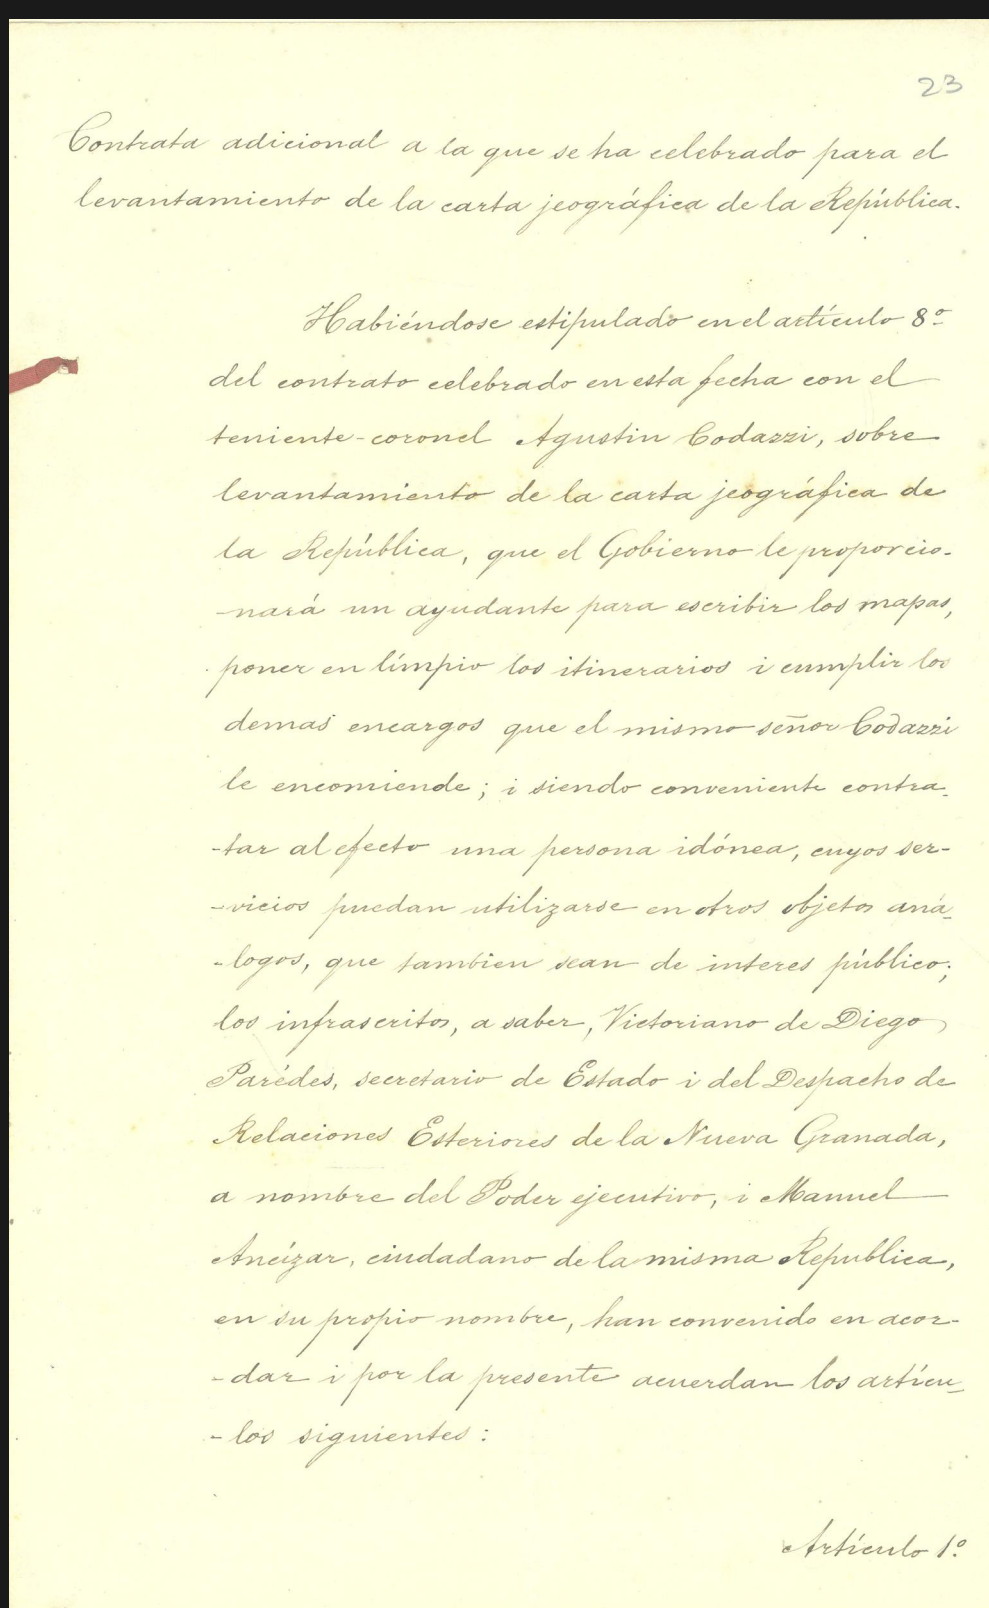 23
Contrata adicional a la que se ha celebrado para el
levantamiento de la carta jeográfica de la República.
Habiéndose estipulado en el artículo 8º
del contrato celebrado en esta fecha con el
teniente-coronel Agustin Codazzi, sobre
levantamiento de la carta jeográfica de
la República, que el Gobierno le proporcio-
-nará un ayudante para escribir los mapas,
poner en límpio los itinerarios i cumplir los
demas encargos que el mismo señor Codazzi
le encomiende; i siendo conveniente contra-
-tar al efecto una persona idónea, cuyos ser-
-vicios puedan utilizarse en otros objetos aná-
-logos, que tambien sean de interes público;
los infrascritos, a saber, Victoriano de Diego
Parédes, secretario de Estado i del Despacho de
Relaciones Esteriores de la Nueva Granada,
a nombre del Poder ejecutivo, i Manuel
Ancízar, ciudadano de la misma Republica,
en su propio nombre, han convenido en acor-
-dar i por la presente acuerdan los artícu-
-los siguientes:
Artículo 1º